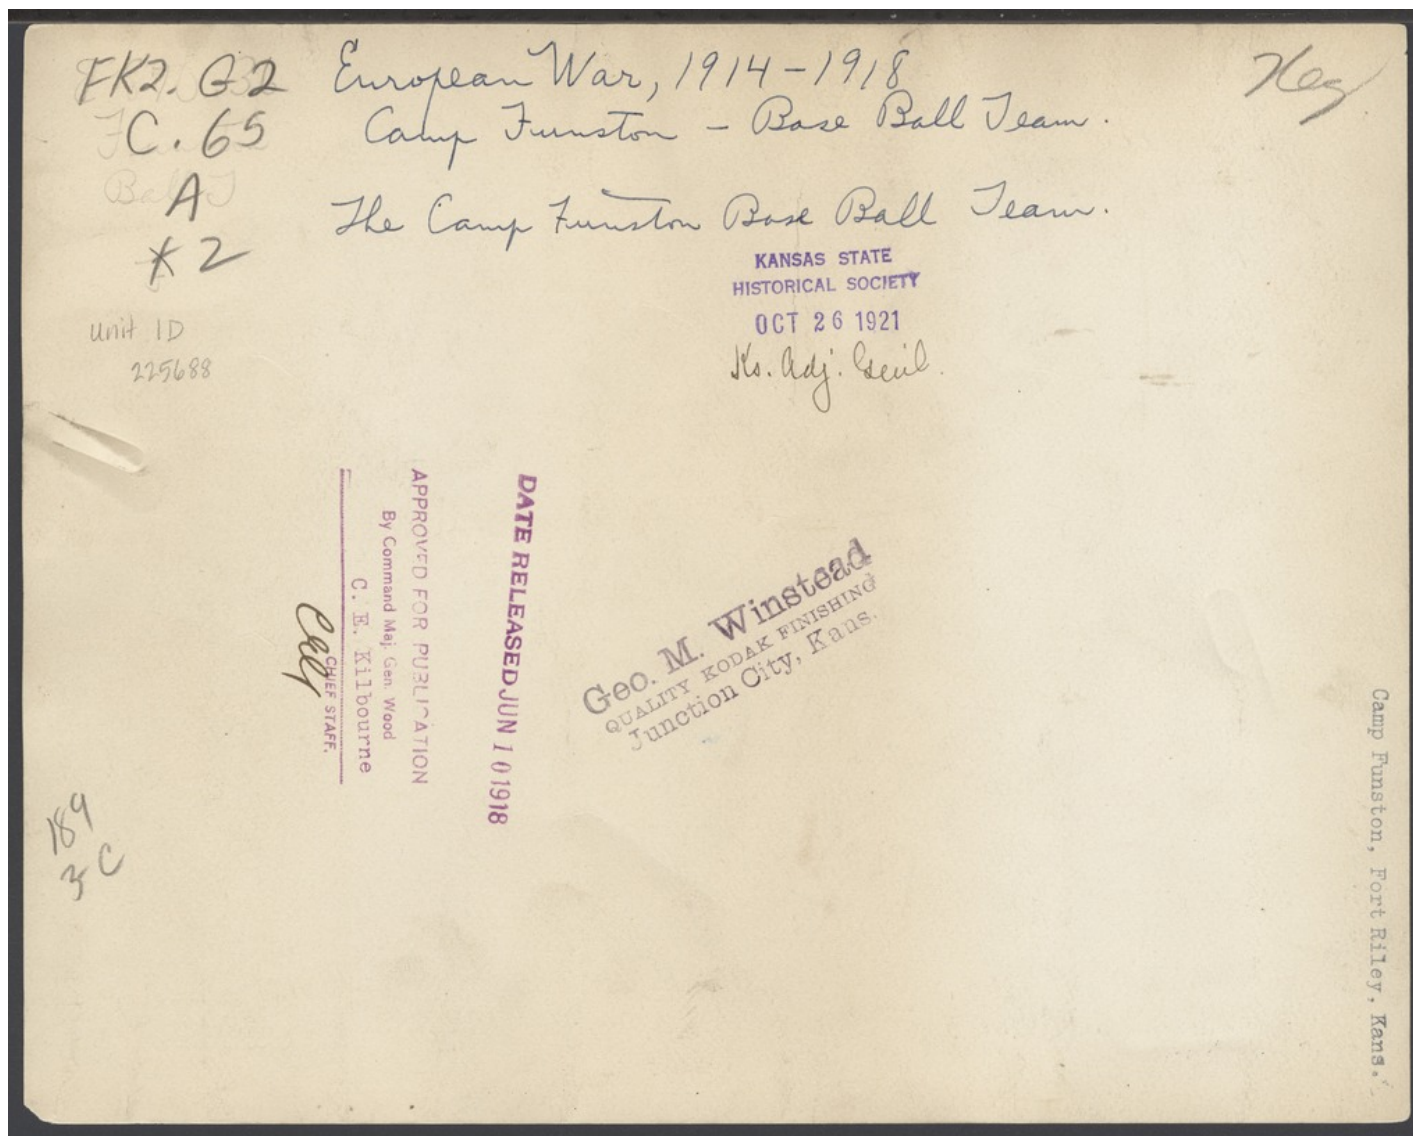 FK2. G2
C. 65
A
*2
European War, 1914-1918
Camp Funston - Base Ball Team.
Neg
The Camp Funston Base Ball Team.
KANSAS STATE
HISTORICAL SOCIETY
OCT 26 1921
Ks. Adj. Genl.
unit ID
225688
DATE RELEASED JUN 10 1918
APPROVED FOR PUBLICATION
By Command Maj. Gen. Wood
C. E. Kilbourne
CHIEF STAFF.
Geo. M. Winstead
QUALITY KODAK FINISHING
Junction City, Kans.
189
3C
Camp Funston, Fort Riley, Kans.